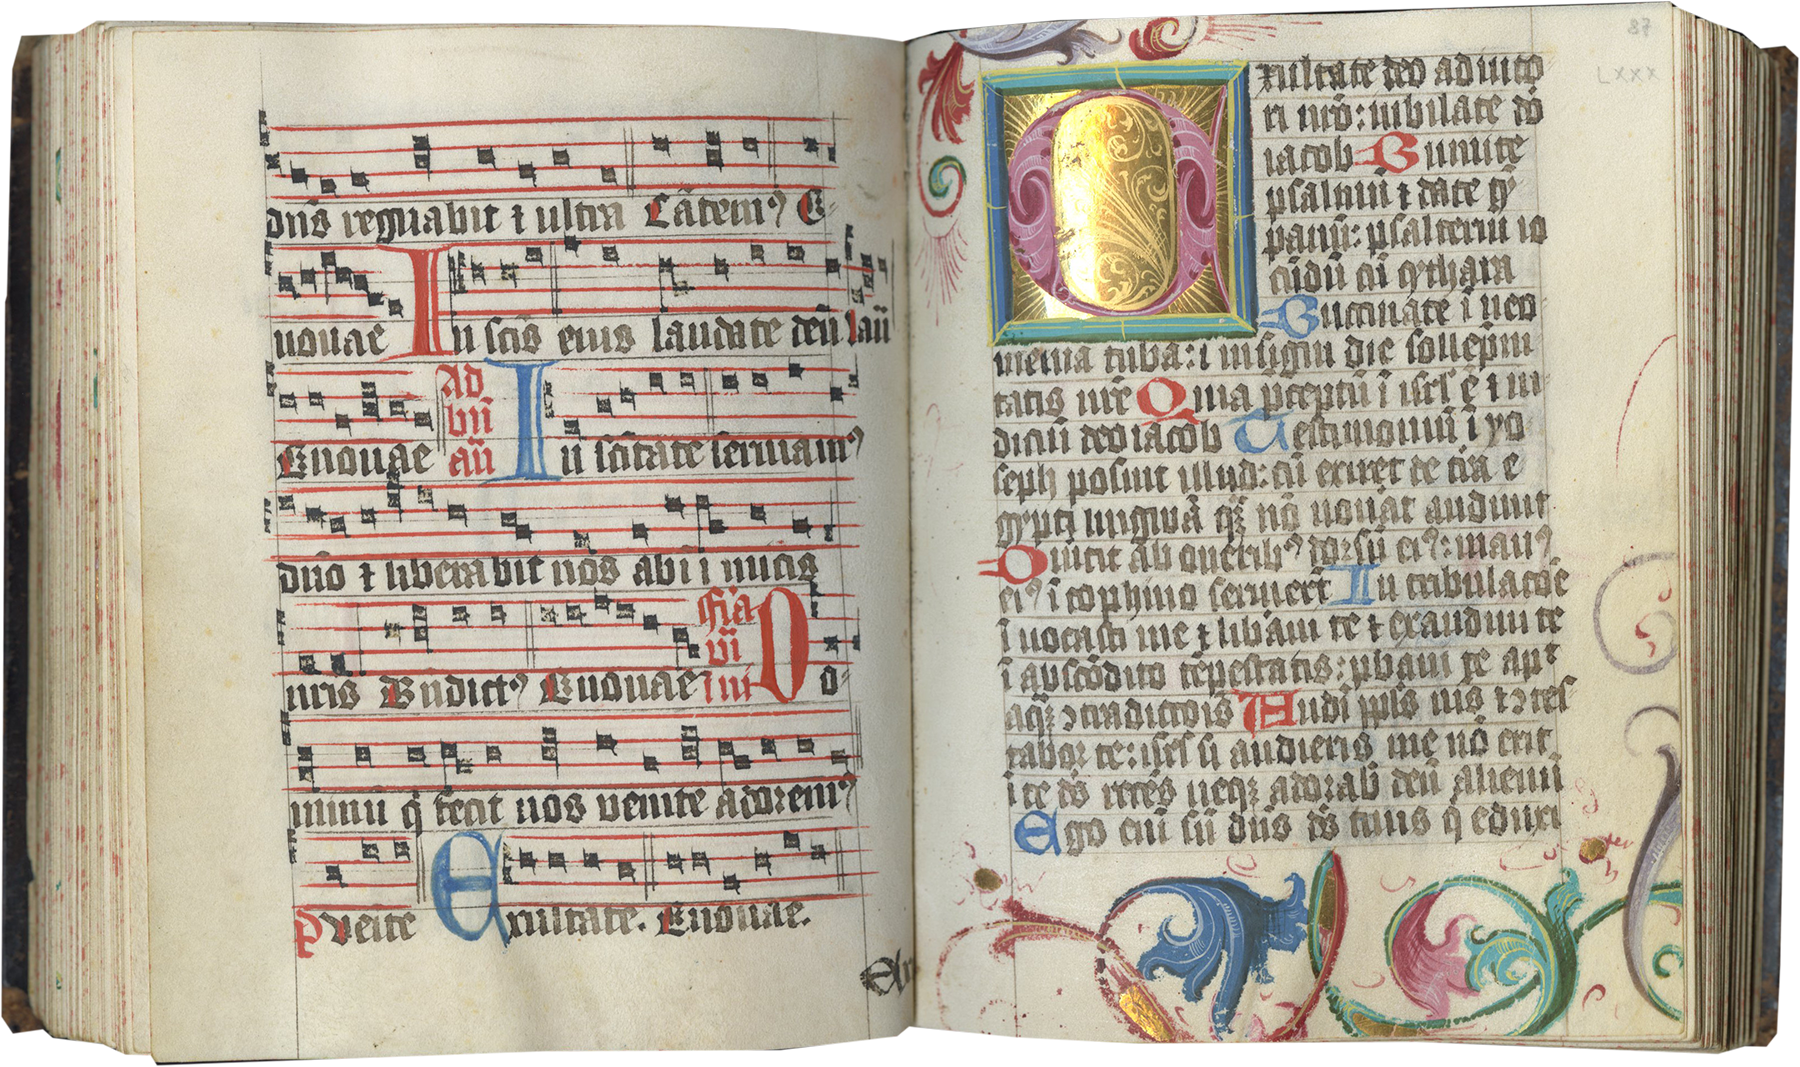 dn̄s regnabit ⁊ ultra Cātem⁹ E
uouae In scīs eius laudate deū lau
Euouae
Ad
vīī
an̄
In sc̄itate seruiam⁹
dn̄o ⁊ liberabit nos ab īīmicis
nr̄is Bn̄dict⁹ Euouae
fīa
vī
Inī
Do
minū q̄ fecit nos venite adorem⁹
P Veite Exultate. Euouae.
87
LXXX
Exultate deo adiuto
ri nr̄o: iubilate dō
iacob Sumite
psalmū ⁊ date tȳ
panū: psalteriū io
cūdū cū cythara
Buccinate ī neo
menia tuba: ī insigni die sollēpni
tatis nr̄e Quia p̄ceptū ī isr̄l ē ⁊ iu
diciū deo iacob Testimoniū ī yo
seph posuit illud: cū exiret de tr̄a e
gypti lingwā quā nō nouat audiuit
Diuitit ab onerib⁹ dorsū ei⁹: man⁹
ei⁹ ī cophino seruiert̄ In tribulatōe
īuocasti me ⁊ libaui te ⁊ exaudiui te
ī abscōdito tēpestatis: ꝓbaui te ap̄
aquā ꝯtradictōis Audi ppl̄s me⁹ ⁊ ꝯtes
tabor te: isr̄l si audieris me nō erit
ī te ds̄ recēs neqꝫ adorab̄ deū alienū
Ego enī sū dn̄s ds̄ tuus q̄ eduxi